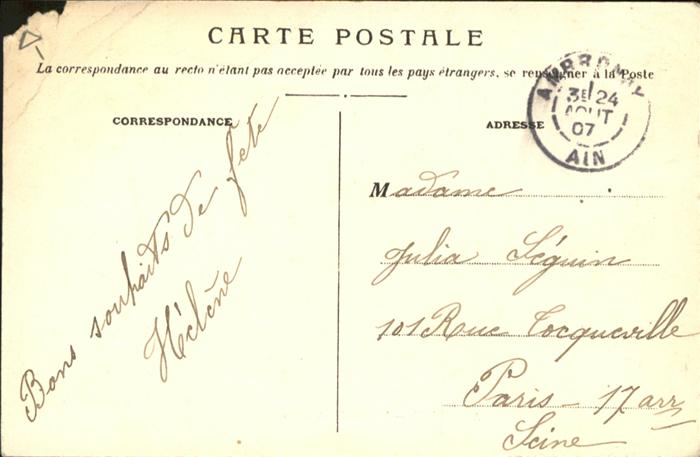 CARTE POSTALE
La correspondance au recto n'étant pas acceptée par tous les pays étrangers, se renseigner à la Poste
CORRESPONDANCE
Bons souhaits de fête
Hélène
ADRESSE
AMBRONAY
3E 24
AOUT
07
AIN
Madame
Julia Séguin
101 Rue Tocqueville
Paris - 17 arr
Seine